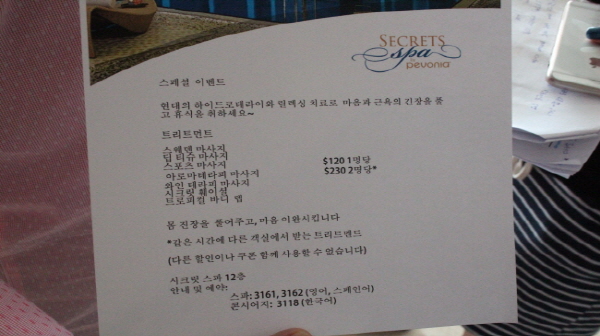 SECRETS
spa
by pevonia
스페셜 이벤트
현대의 하이드로테라이와 릴렉싱 치료로 마음과 근육의 긴장을 풀
고 휴식을 취하세요~
트리트먼트
스웨덴 마사지
딥 티슈 마사지
스포츠 마사지 $120 1명당
아로마테라피 마사지 $230 2명당*
와인 테라피 마사지
시크릿 훼이셜
트로피컬 바디 랩
몸 긴장을 풀어주고, 마음 이완시킵니다
*같은 시간에 다른 객실에서 받는 트리트멘드
(다른 할인이나 쿠폰 함께 사용할 수 없습니다)
시크릿 스파 12층
안내 및 예약:
스파: 3161, 3162 (영어, 스페인어)
콘시어지: 3118 (한국어)